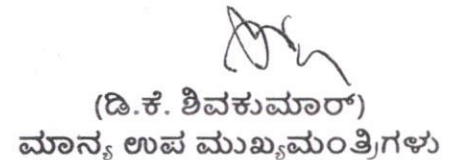 (ಡಿ.ಕೆ. ಶಿವಕುಮಾರ್)
ಮಾನ್ಯ ಉಪ ಮುಖ್ಯಮಂತ್ರಿಗಳು